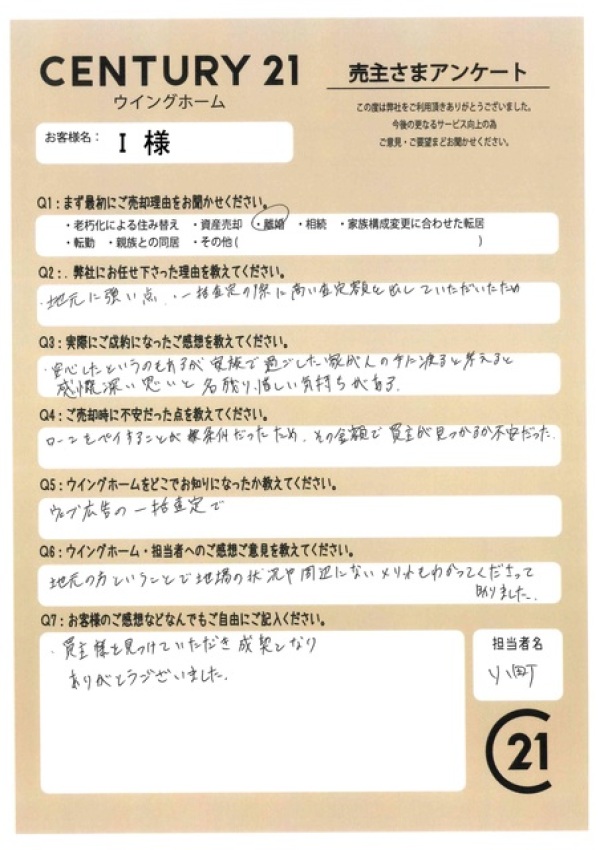 CENTURY 21
ウイングホーム
売主さまアンケート
この度は弊社をご利用頂きありがとうございました。
今後の更なるサービス向上の為
ご意見・ご要望まどお聞かせください。
お客様名： I 様
Q1：まず最初にご売却理由をお聞かせください。
・老朽化による住み替え ・資産売却 ・離婚 ・相続 ・家族構成変更に合わせた転居
・転勤 ・親族との同居 ・その他( )
Q2：. 弊社にお任せ下さった理由を教えてください。
・地元に強い点. ・一括査定の際に高い査定額を出していただいたため
Q3：実際にご成約になったご感想を教えてください。
・安心したというのもあるが家族で過ごした家が人の手に渡ると考えると
感慨深い思いと名残り惜しい気持ちがある.
Q4：ご売却時に不安だった点を教えてください。
ローンをペイすることが 条件だったため、その金額で買主が見つかるか不安だった.
Q5：ウイングホームをどこでお知りになったか教えてください。
ウェブ広告の一括査定で
Q6：ウイングホーム・担当者へのご感想ご意見を教えてください。
地元の方ということで地場の状況や周辺にないメリットもわかってくださって
助りました.
Q7：お客様のご感想などなんでもご自由にご記入ください。
・買主様を見つけていただき成契となり
ありがとうございました.
担当者名
小町
C21